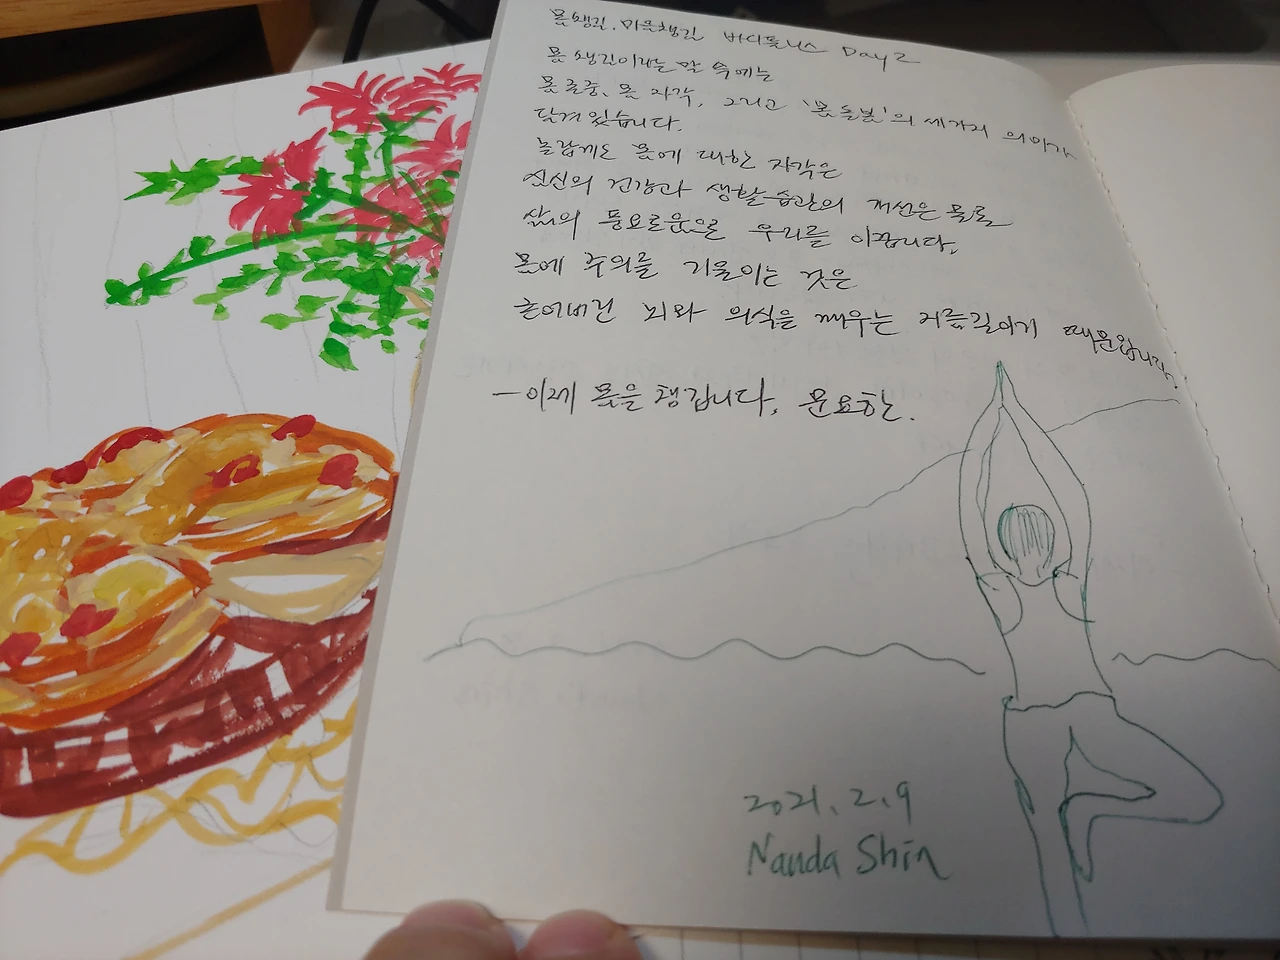 몸챙김. 마음챙김 바디풀니스 Day 2
몸 챙김이라는 말 속에는
몸 존중, 몸 자각, 그리고 '몸 돌봄'의 세가지 의미가
담겨 있습니다.
놀랍게도 몸에 대한 자각은
심신의 건강과 생활습관의 개선은 물론
삶의 풍요로움으로 우리를 이끕니다.
몸에 주의를 기울이는 것은
굳어버린 뇌와 의식을 깨우는 지름길이기 때문입니다.
- 이제 몸을 챙깁니다, 문요한.
2021. 2. 9
Nanda Shin